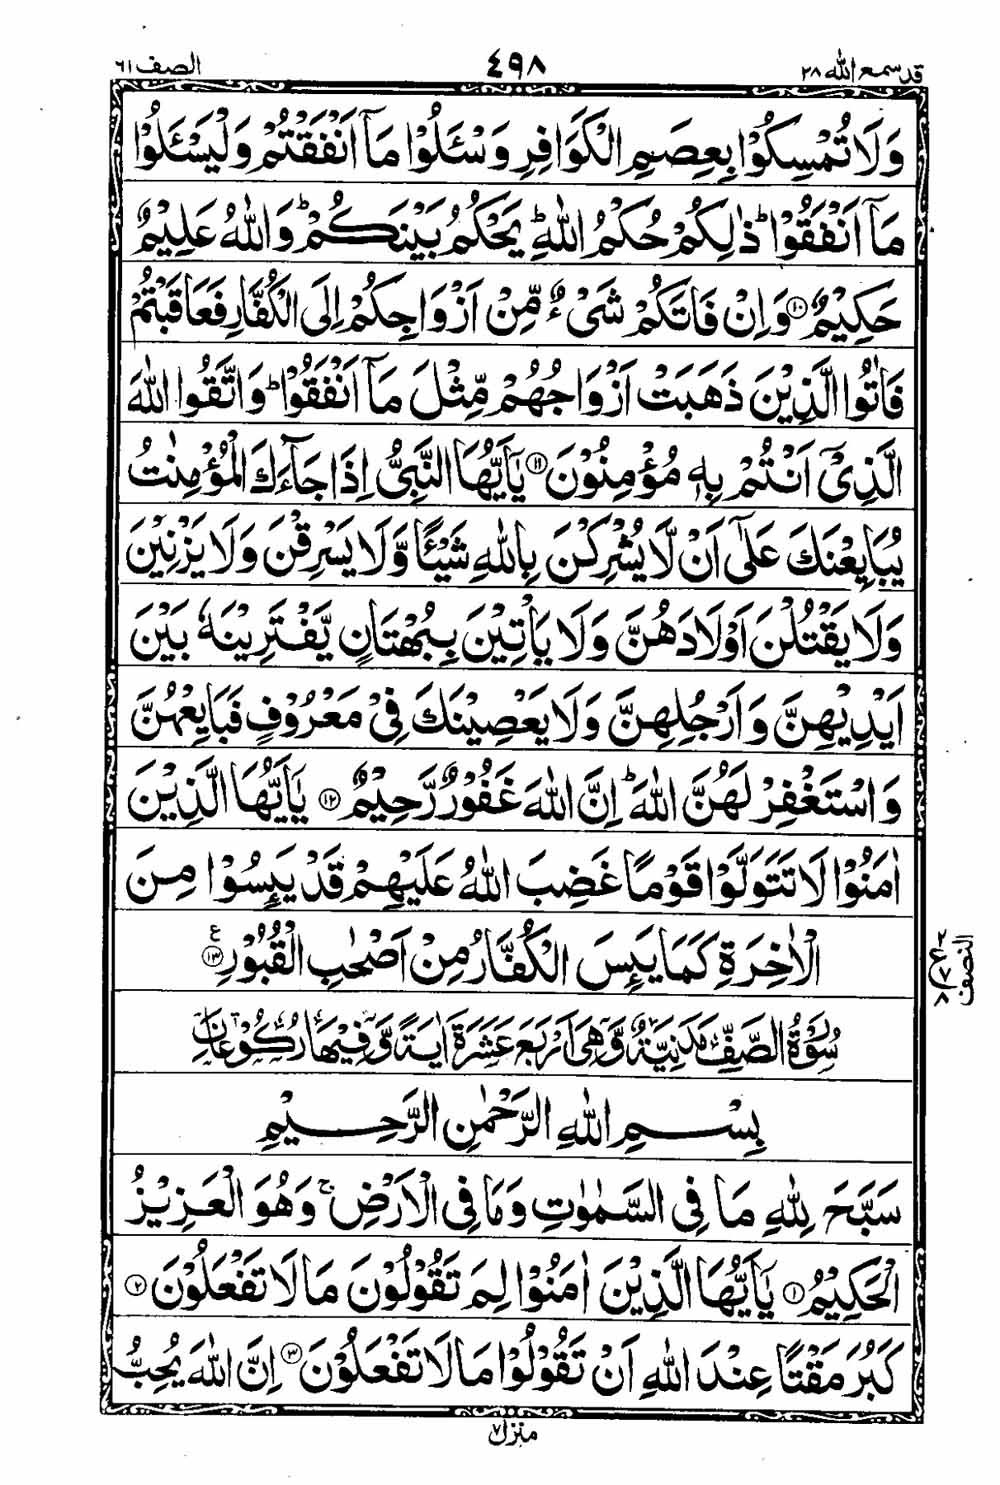 قد سمع الله ٢٨
٤٩٨
الصف ٦١
وَلَا تُمْسِكُوْا بِعِصَمِ الْكَوَافِرِ وَسْـَٔلُوْا مَآ اَنْفَقْتُمْ وَلْيَسْـَٔلُوْا
مَآ اَنْفَقُوْا ؕ ذٰلِكُمْ حُكْمُ اللّٰهِ ؕ يَحْكُمُ بَيْنَكُمْ ؕ وَاللّٰهُ عَلِيْمٌ
حَكِيْمٌ ۝١٠ وَاِنْ فَاتَكُمْ شَىْءٌ مِّنْ اَزْوَاجِكُمْ اِلَى الْكُفَّارِ فَعَاقَبْتُمْ
فَاٰتُوا الَّذِيْنَ ذَهَبَتْ اَزْوَاجُهُمْ مِّثْلَ مَآ اَنْفَقُوْا ؕ وَاتَّقُوا اللّٰهَ
الَّذِىْٓ اَنْتُمْ بِهٖ مُؤْمِنُوْنَ ۝١١ يٰٓاَيُّهَا النَّبِىُّ اِذَا جَآءَكَ الْمُؤْمِنٰتُ
يُبَايِعْنَكَ عَلٰٓى اَنْ لَّا يُشْرِكْنَ بِاللّٰهِ شَيْـًٔا وَّلَا يَسْرِقْنَ وَلَا يَزْنِيْنَ
وَلَا يَقْتُلْنَ اَوْلَادَهُنَّ وَلَا يَاْتِيْنَ بِبُهْتَانٍ يَّفْتَرِيْنَهٗ بَيْنَ
اَيْدِيْهِنَّ وَاَرْجُلِهِنَّ وَلَا يَعْصِيْنَكَ فِىْ مَعْرُوْفٍ فَبَايِعْهُنَّ
وَاسْتَغْفِرْ لَهُنَّ اللّٰهَ ؕ اِنَّ اللّٰهَ غَفُوْرٌ رَّحِيْمٌ ۝١٢ يٰٓاَيُّهَا الَّذِيْنَ
اٰمَنُوْا لَا تَتَوَلَّوْا قَوْمًا غَضِبَ اللّٰهُ عَلَيْهِمْ قَدْ يَئِسُوْا مِنَ
الْاٰخِرَةِ كَمَا يَئِسَ الْكُفَّارُ مِنْ اَصْحٰبِ الْقُبُوْرِ ۝١٣ ع
٢
٧
٨
النصف
سُوْرَةُ الصَّفِّ مَدَنِيَّةٌ وَّهِىَ اَرْبَعَ عَشَرَةَ اٰيَةً وَّفِيْهَا رُكُوْعَانِ
بِسْمِ اللّٰهِ الرَّحْمٰنِ الرَّحِيْمِ
سَبَّحَ لِلّٰهِ مَا فِى السَّمٰوٰتِ وَمَا فِى الْاَرْضِ ۚ وَهُوَ الْعَزِيْزُ
الْحَكِيْمُ ۝١ يٰٓاَيُّهَا الَّذِيْنَ اٰمَنُوْا لِمَ تَقُوْلُوْنَ مَا لَا تَفْعَلُوْنَ ۝٢
كَبُرَ مَقْتًا عِنْدَ اللّٰهِ اَنْ تَقُوْلُوْا مَا لَا تَفْعَلُوْنَ ۝٣ اِنَّ اللّٰهَ يُحِبُّ
منزل ٧